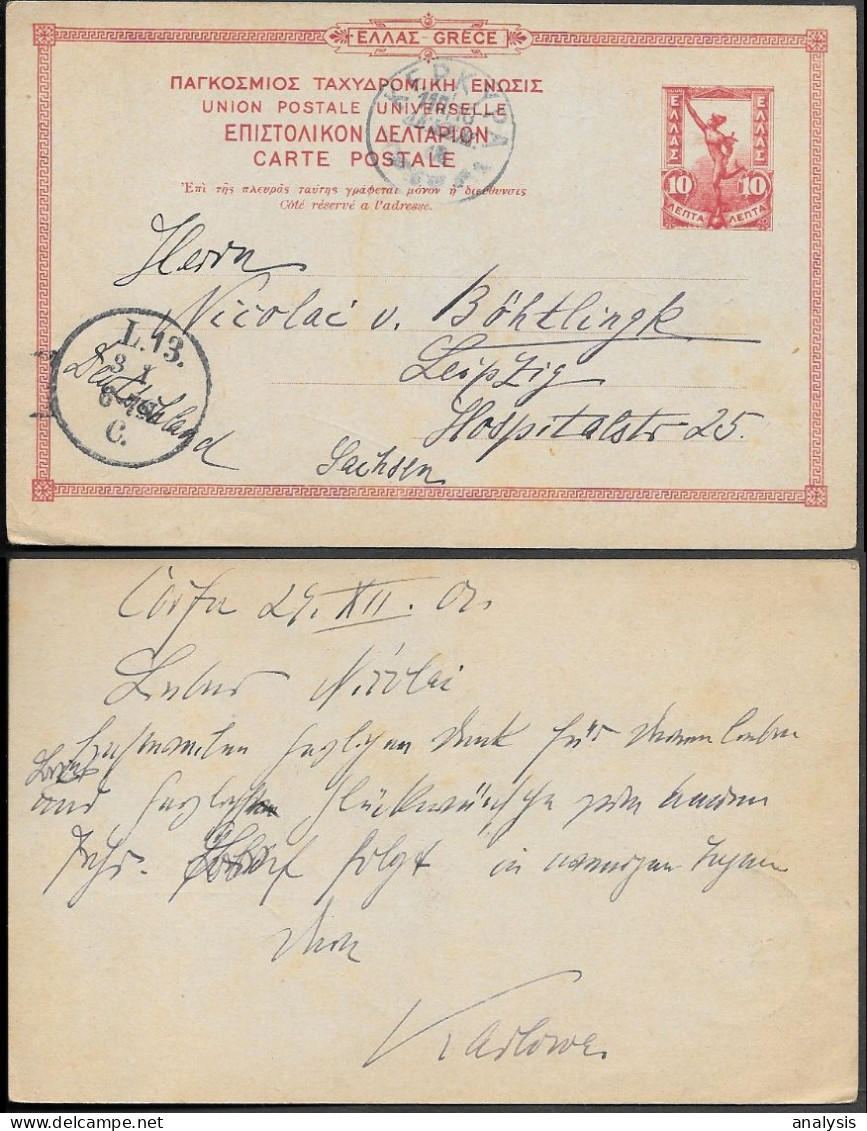 ΕΛΛΑΣ-GRÈCE
ΠΑΓΚΟΣΜΙΟΣ ΤΑΧΥΔΡΟΜΙΚΗ ΕΝΩΣΙΣ
UNION POSTALE UNIVERSELLE
ΕΠΙΣΤΟΛΙΚΟΝ ΔΕΛΤΑΡΙΟΝ
CARTE POSTALE
Ἐπὶ τῆς πλευρᾶς ταύτης γράφεται μόνον ἡ διεύθυνσις
Côté réservé a l'adresse.
ΚΕΡΚΥΡΑ
ΕΛΛΑΣ ΕΛΛΑΣ
10 10
ΛΕΠΤΑ ΛΕΠΤΑ
Herrn
Nicolai v. Böhtlingk
Leipzig
Hospitalstr 25.
Sachsen
Deutschland
L.13.
3 1
C.
Corfu 29. XII. 01.
Lieber Nicolai
herzlichen Dank für Deinen lieben
Brief und Glückwünsche zum neuen
Jahr. Brief folgt in wenigen Tagen
Dein
Karlowa
analysis